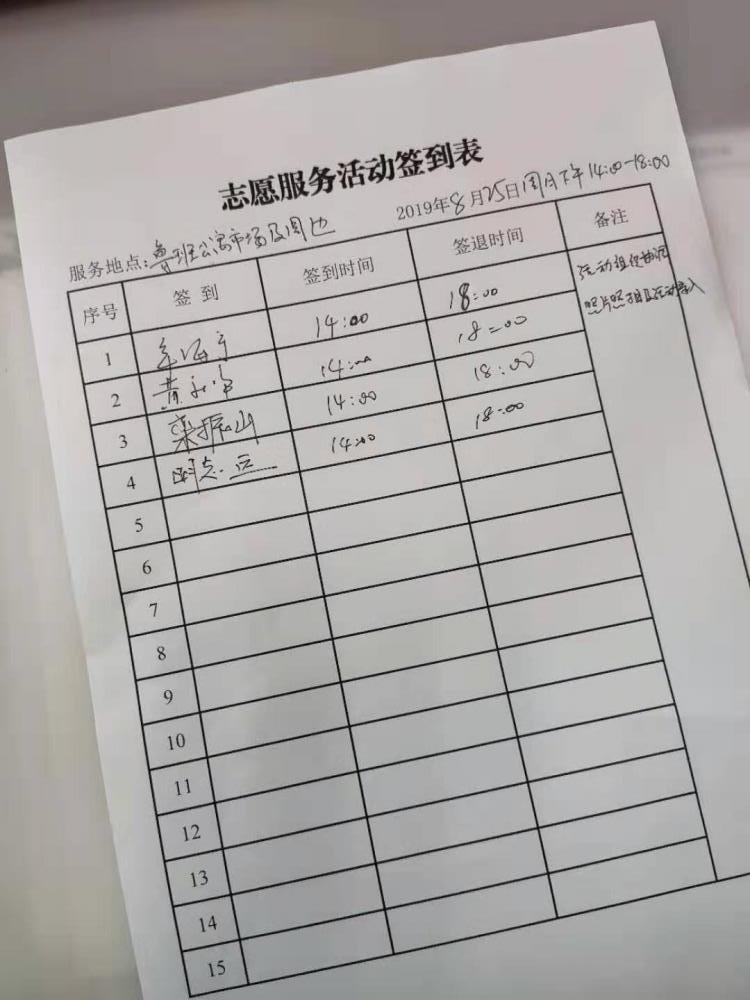 志愿服务活动签到表
服务地点:鲁班公寓市场及周边 2019年8月25日周日下午14:00-18:00
序号 签到 签到时间 签退时间 备注
1 14:00 18:00
2 黄 14:00 18:00
3 栾振山 14:00 18:00
4 14:00 18:00
5
6
7
8
9
10
11
12
13
14
15
活动组织
照片